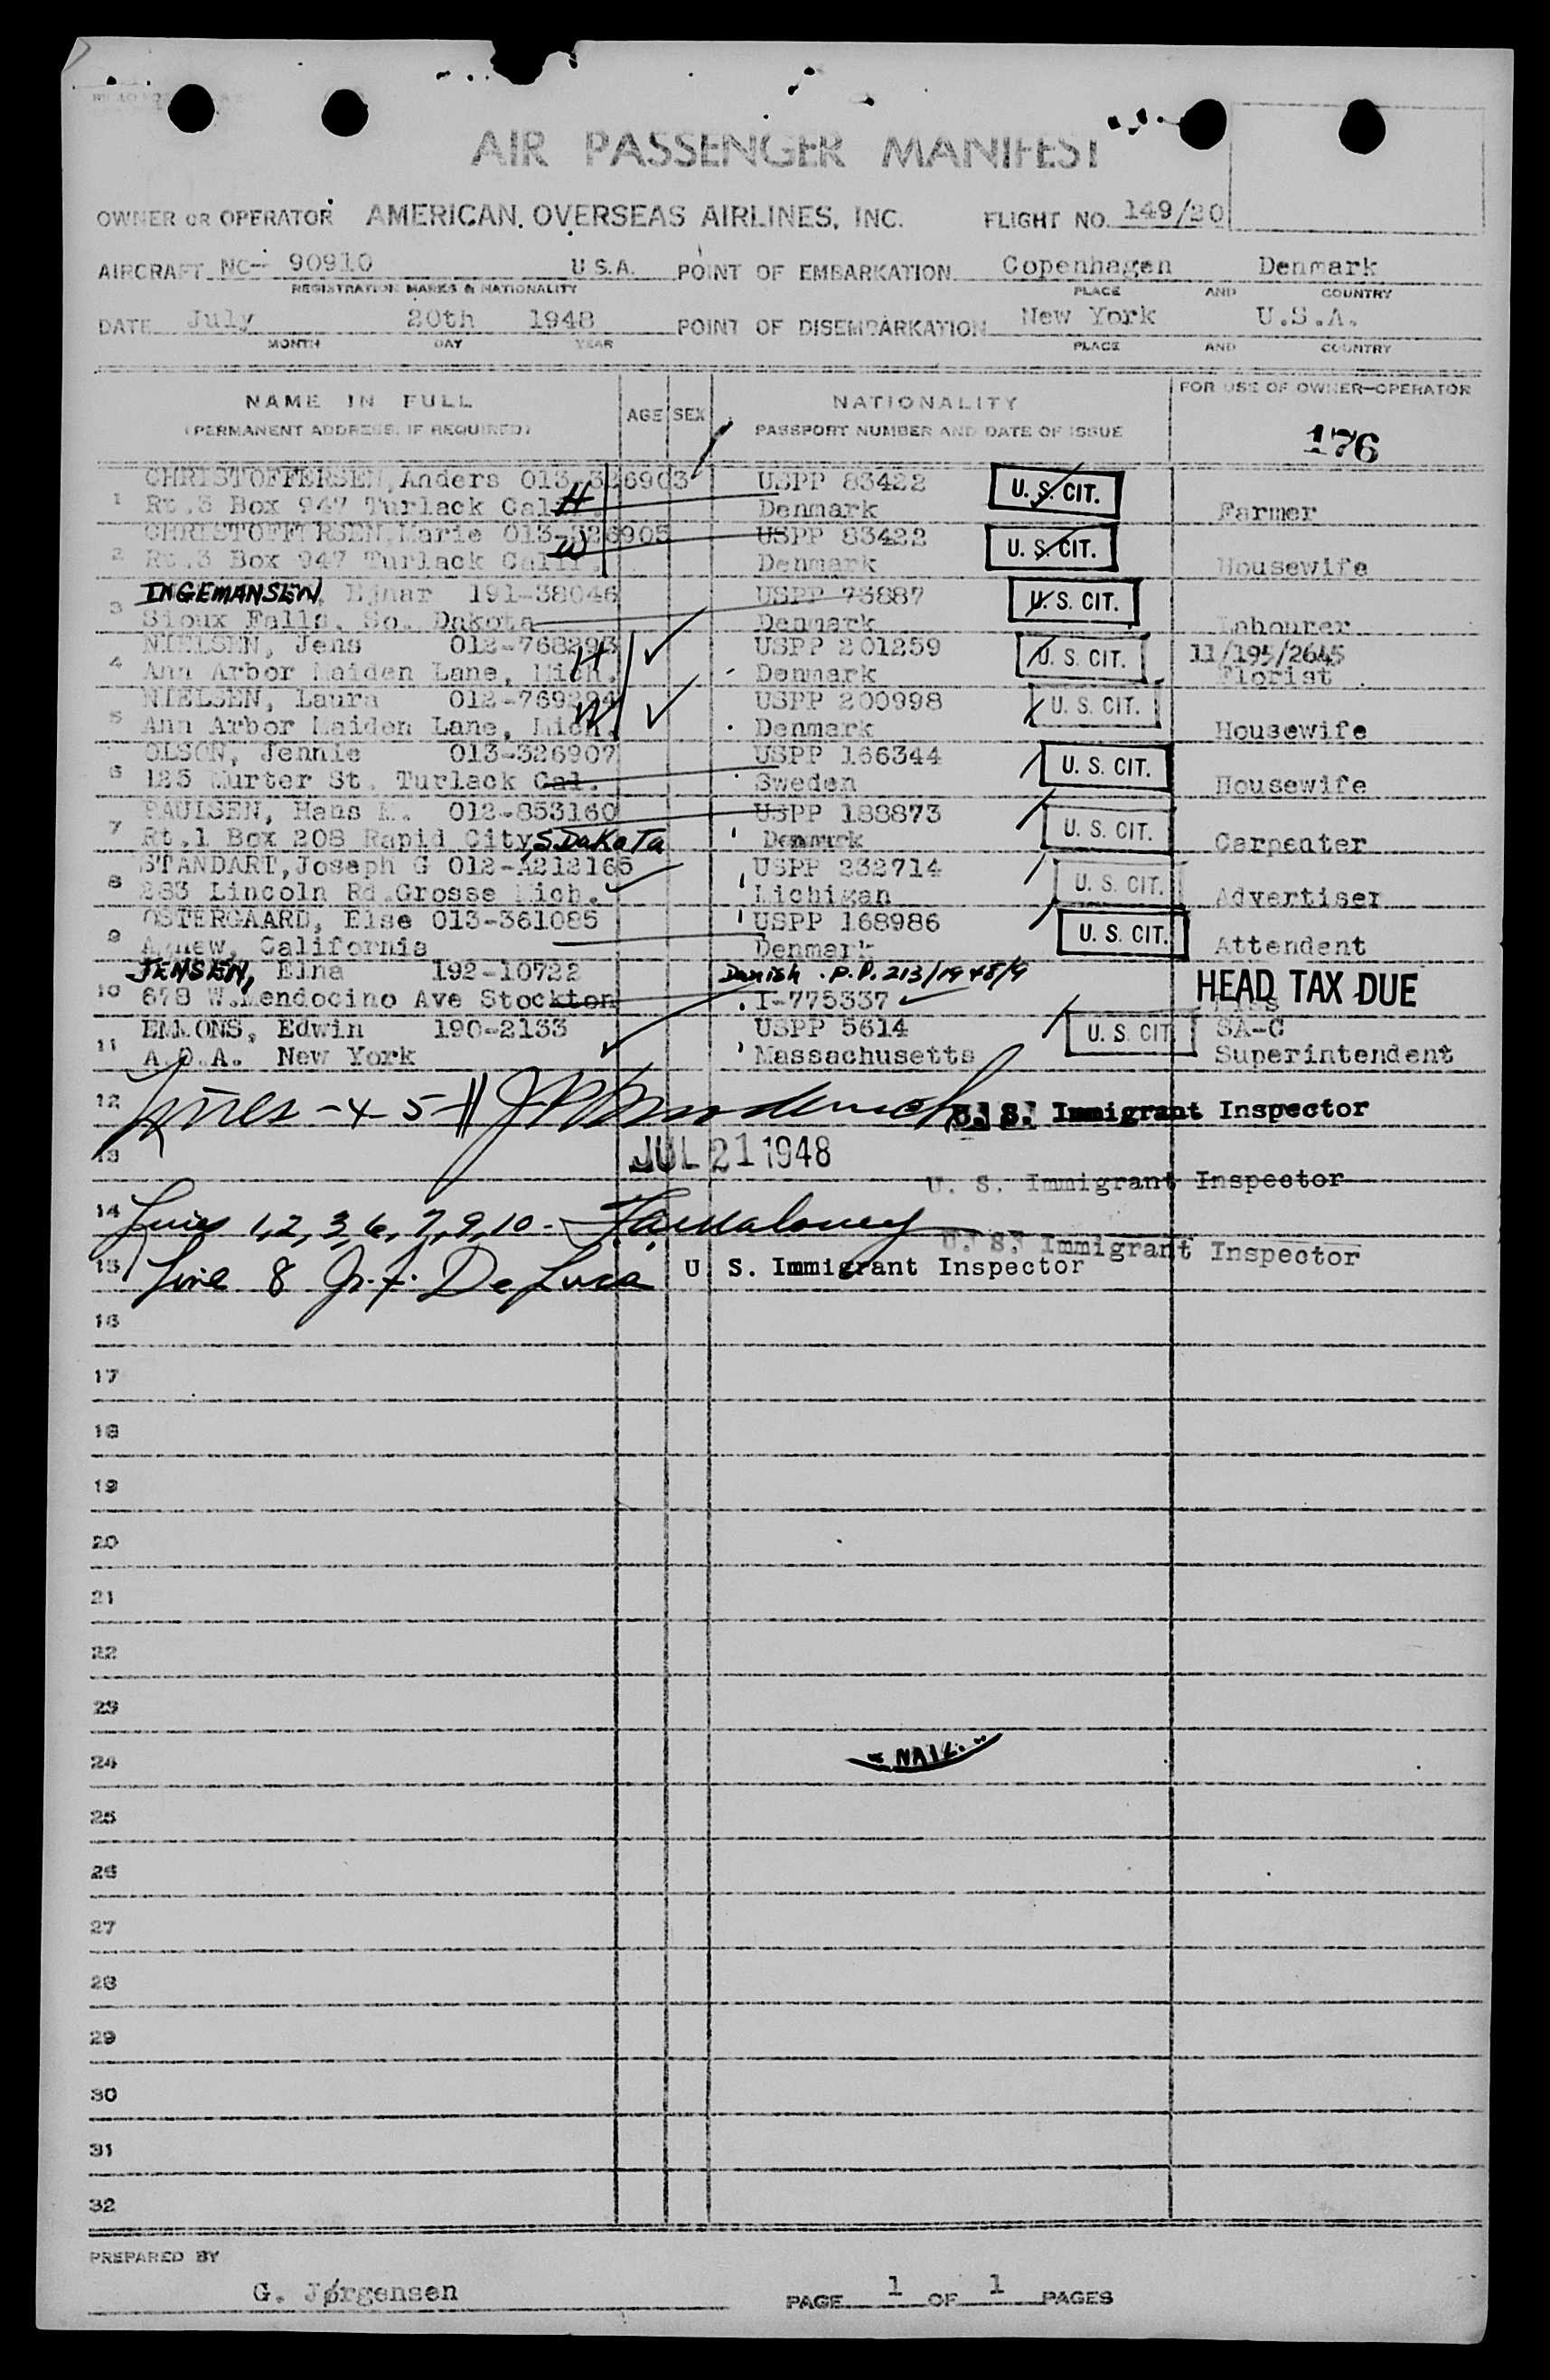 AIR PASSENGER MANIFEST
OWNER OR OPERATOR AMERICAN OVERSEAS AIRLINES, INC. FLIGHT NO. 149/20
AIRCRAFT NC- 90910 U.S.A. POINT OF EMBARKATION Copenhagen Denmark
REGISTRATION MARKS & NATIONALITY PLACE AND COUNTRY
DATE July 20th 1948 POINT OF DISEMBARKATION New York U.S.A.
MONTH DAY YEAR PLACE AND COUNTRY
NAME IN FULL AGE SEX NATIONALITY FOR USE OF OWNER-OPERATOR
(PERMANENT ADDRESS, IF REQUIRED) PASSPORT NUMBER AND DATE OF ISSUE 176
1 CHRISTOFFERSEN, Anders 013-326903 USPP 83422 U. S. CIT.
Rt.3 Box 947 Turlack Calif. H Denmark Farmer
2 CHRISTOFFERSEN, Marie 013-326905 USPP 83422 U. S. CIT.
Rt.3 Box 947 Turlack Calif. W Denmark Housewife
3 INGEMANSEN, Ejnar 191-38046 USPP 73887 U. S. CIT.
Sioux Falls, So. Dakota Denmark Labourer
4 NIELSEN, Jens 012-768293 USPP 201259 U. S. CIT. 11/195/2645
Ann Arbor Maiden Lane, Mich. H Denmark Florist
5 NIELSEN, Laura 012-769294 USPP 200998 U. S. CIT.
Ann Arbor Maiden Lane, Mich. W Denmark Housewife
6 OLSON, Jennie 013-326907 USPP 166344 U. S. CIT.
125 Murter St. Turlack Cal. Sweden Housewife
7 PAULSEN, Hans M. 012-853160 USPP 188873 U. S. CIT.
Rt.1 Box 208 Rapid City, S. DaKoTa Denmark Carpenter
8 STANDART, Joseph G 012-A212165 USPP 232714 U. S. CIT.
283 Lincoln Rd. Grosse Mich. Michigan Advertiser
9 OSTERGAARD, Else 013-361085 USPP 168986 U. S. CIT.
Agnew, California Denmark Attendent
10 JENSEN, Elna 192-10722 Danish P.P. 213/1948/9 HEAD TAX DUE
678 W.Mendocino Ave Stockton I-775337
11 EMMONS, Edwin 190-2133 USPP 5614 U. S. CIT. SA-C
A.O.A. New York Massachusetts Superintendent
12 Lines - 4 5 - U. S. Immigrant Inspector
13 JUL 21 1948
U. S. Immigrant Inspector
14 Lines 1, 2, 3, 6, 7, 9, 10 -
U. S. Immigrant Inspector
15 Line 8 De Luca U S. Immigrant Inspector
16
17
18
19
20
21
22
23
24 "NAIL"
25
26
27
28
29
30
31
32
PREPARED BY
G. Jørgensen PAGE 1 OF 1 PAGES